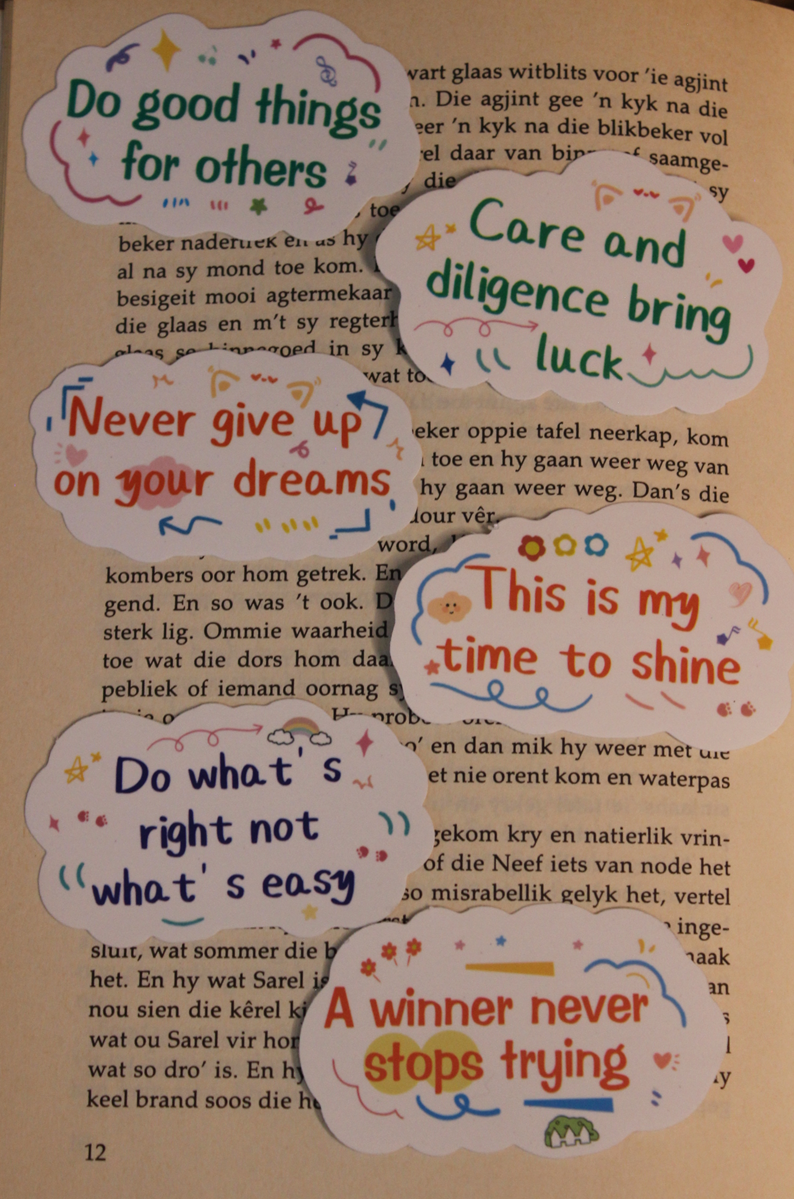 Do good things
for others
wart glaas witblits voor 'ie agjint
Die agjint gee 'n kyk na die
'n kyk na die blikbeker vol
daar van saamge-
die
sy
toe
Care and
diligence bring
luck
beker en as hy
al na sy mond toe kom.
besigeit mooi agtermekaar
die glaas en m't sy
glaas se in sy
wat
Never give up
on your dreams
oppie tafel neerkap, kom
toe en hy gaan weer weg van
hy gaan weer weg. Dan's die
vêr.
word,
This is my
time to shine
kombers oor hom getrek. En
gend. En so was 't ook.
sterk lig. Ommie waarheid
toe wat die dors hom
pebliek of iemand oornag
en dan mik hy weer met die
nie orent kom en waterpas
Do what's
right not
what's easy
gekom kry en natierlik vrin-
of die Neef iets van node het
so misrabellik gelyk het, vertel
inge-
sluit, wat sommer die
het. En hy wat Sarel
nou sien die kêrel
wat ou Sarel vir
wat so dro' is. En
keel brand soos die
A winner never
stops trying
12